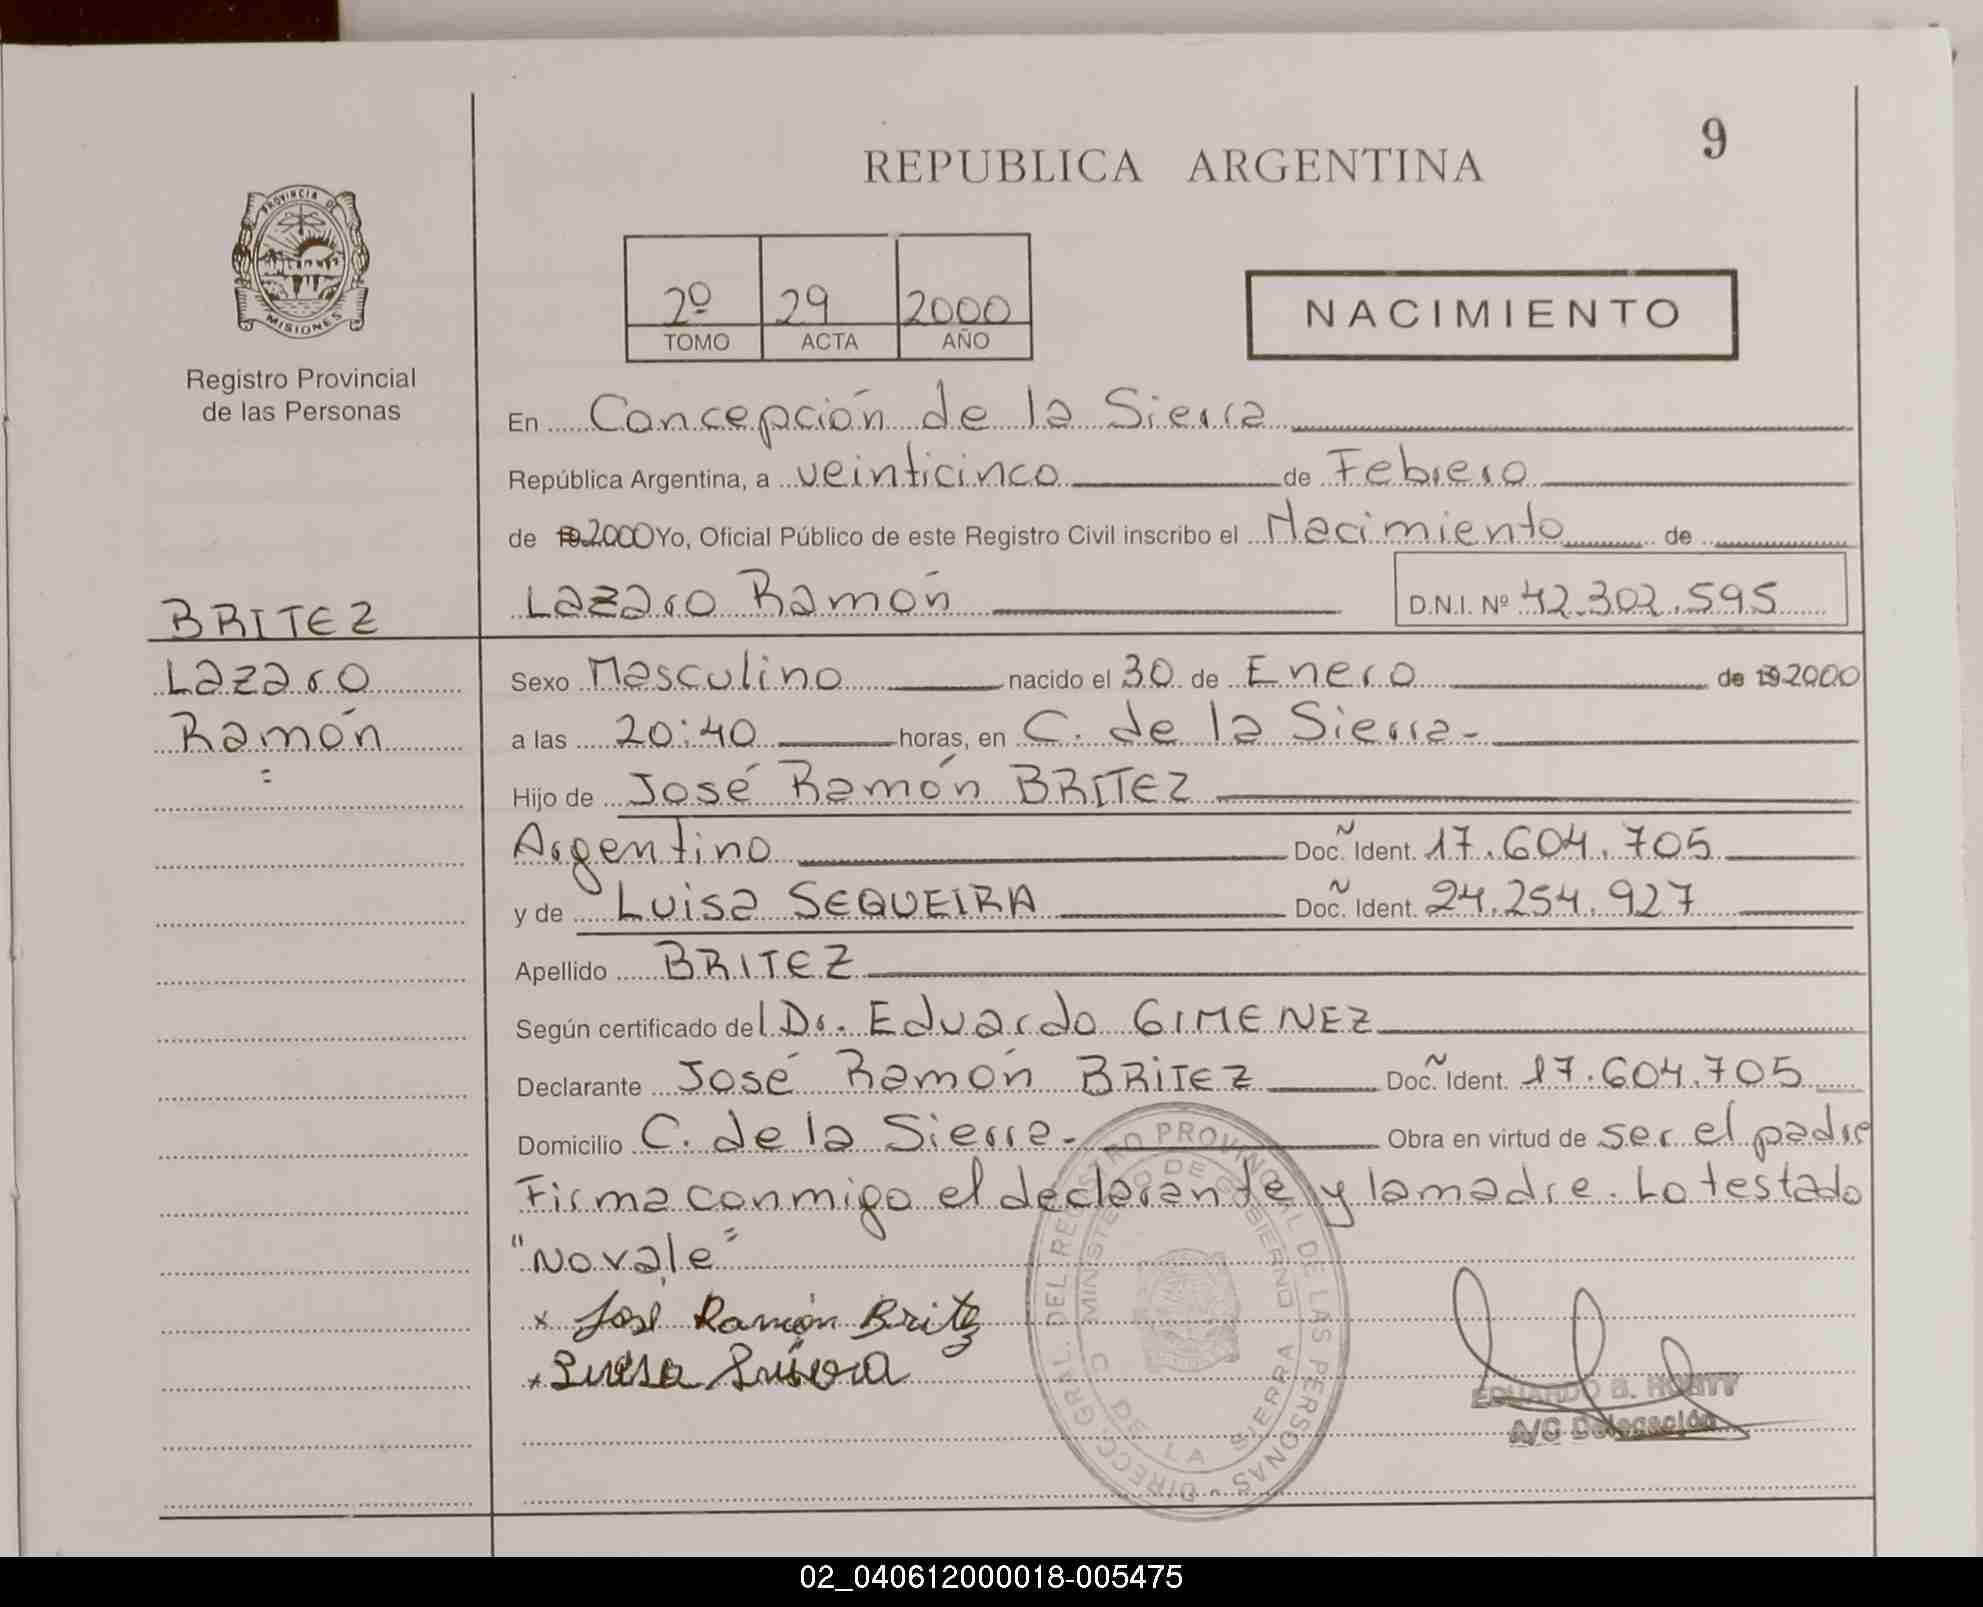 9
REPUBLICA ARGENTINA
PROVINCIA DE
MISIONES
Registro Provincial
de las Personas
2º 29 2000
TOMO ACTA AÑO
NACIMIENTO
En Concepción de la Sierra
República Argentina, a veinticinco de Febrero
de 19 2000 Yo, Oficial Público de este Registro Civil inscribo el Nacimiento de
Lazaro Ramón D.N.I. Nº 42.302.595
BRITEZ
Lazaro
Ramón
=
Sexo Masculino nacido el 30 de Enero de 19 2000
a las 20:40 horas, en C. de la Sierra-
Hijo de José Ramón BRITEZ
Argentino Doc. Ident. 17.604.705
y de Luisa SEQUEIRA Doc. Ident. 24.254.927
Apellido BRITEZ
Según certificado del Dr. Eduardo GIMENEZ
Declarante José Ramón BRITEZ Doc. Ident. 17.604.705
Domicilio C. de la Sierra- Obra en virtud de ser el padre
Firma conmigo el declarante y la madre. Lo testado
"No vale"
x José Ramón Britez
x Luisa
DIRECC. GRAL. DEL REGISTRO PROVINCIAL DE LAS PERSONAS
MINISTERIO DE GOBIERNO
C. DE LA SIERRA
EDUARDO B.
A/C Delegación
02_040612000018-005475